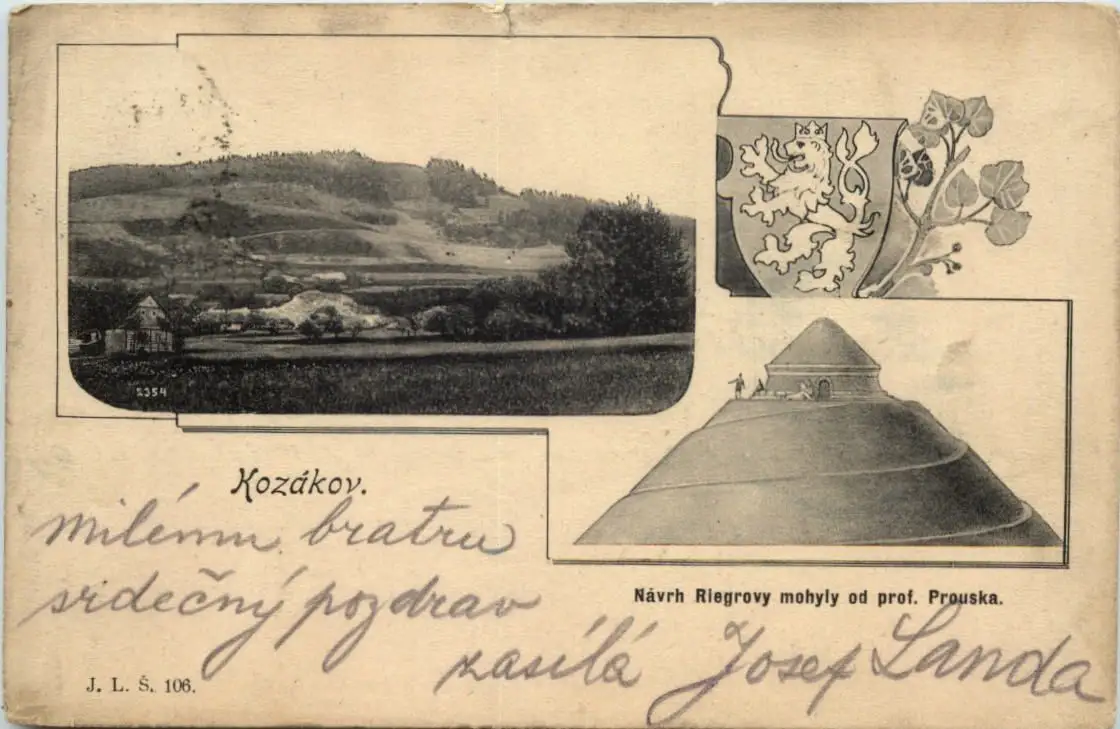 2354
Kozákov.
milému bratru
srdečný pozdrav
zasílá Josef Landa
Návrh Riegrovy mohyly od prof. Prouska.
J. L. Š. 106.